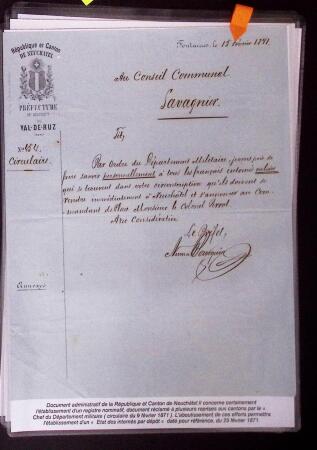 République et Canton
DE NEUCHÂTEL
PRÉFECTURE
DU DISTRICT
DU
VAL-DE-RUZ
No
Circulaire
Annexes
Fontaines, le 15 Février 1871.
Au Conseil Communal
Savagnier.
Tit,
Par ordre du Département Militaire, je vous prie de
faire savoir personnellement à tous les français internés valides
qui se trouvent dans votre circonscription qu'ils doivent se
rendre immédiatement à Neuchâtel et s'annoncer au Com-
mandant de Place Monsieur le Colonel
Avec Considération
Le Préfet,
Document administratif de la République et Canton de Neuchâtel.Il concerne certainement
l'établissement d'un registre nominatif, document réclamé à plusieurs reprises aux cantons par le «
Chef du Département militaire ( circulaire du 9 février 1871 ). L'aboutissement de ces efforts permettra
l'établissement d'un « Etat des internés par dépôt » daté pour référence, du 25 février 1871.